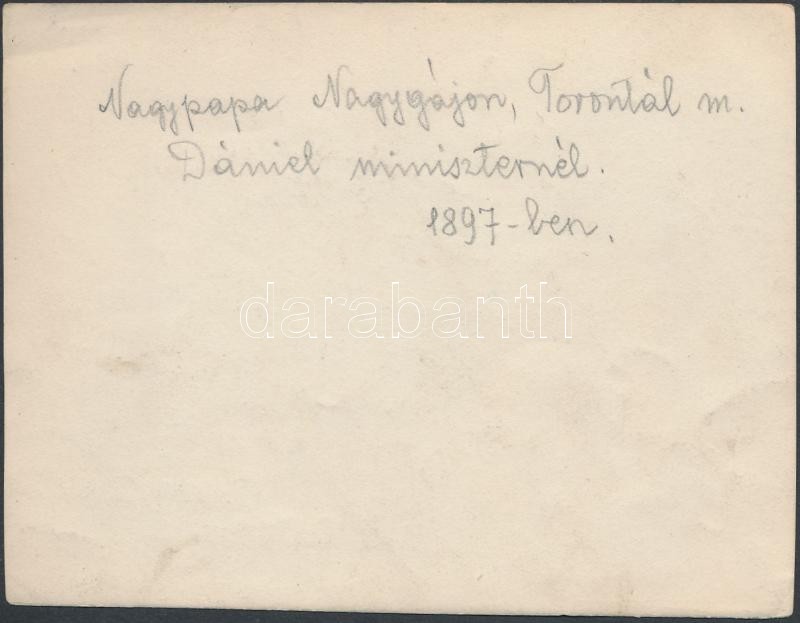 Nagypapa Nagygájon, Torontál m.
Dániel miniszternél.
1897-ben.
darabanth